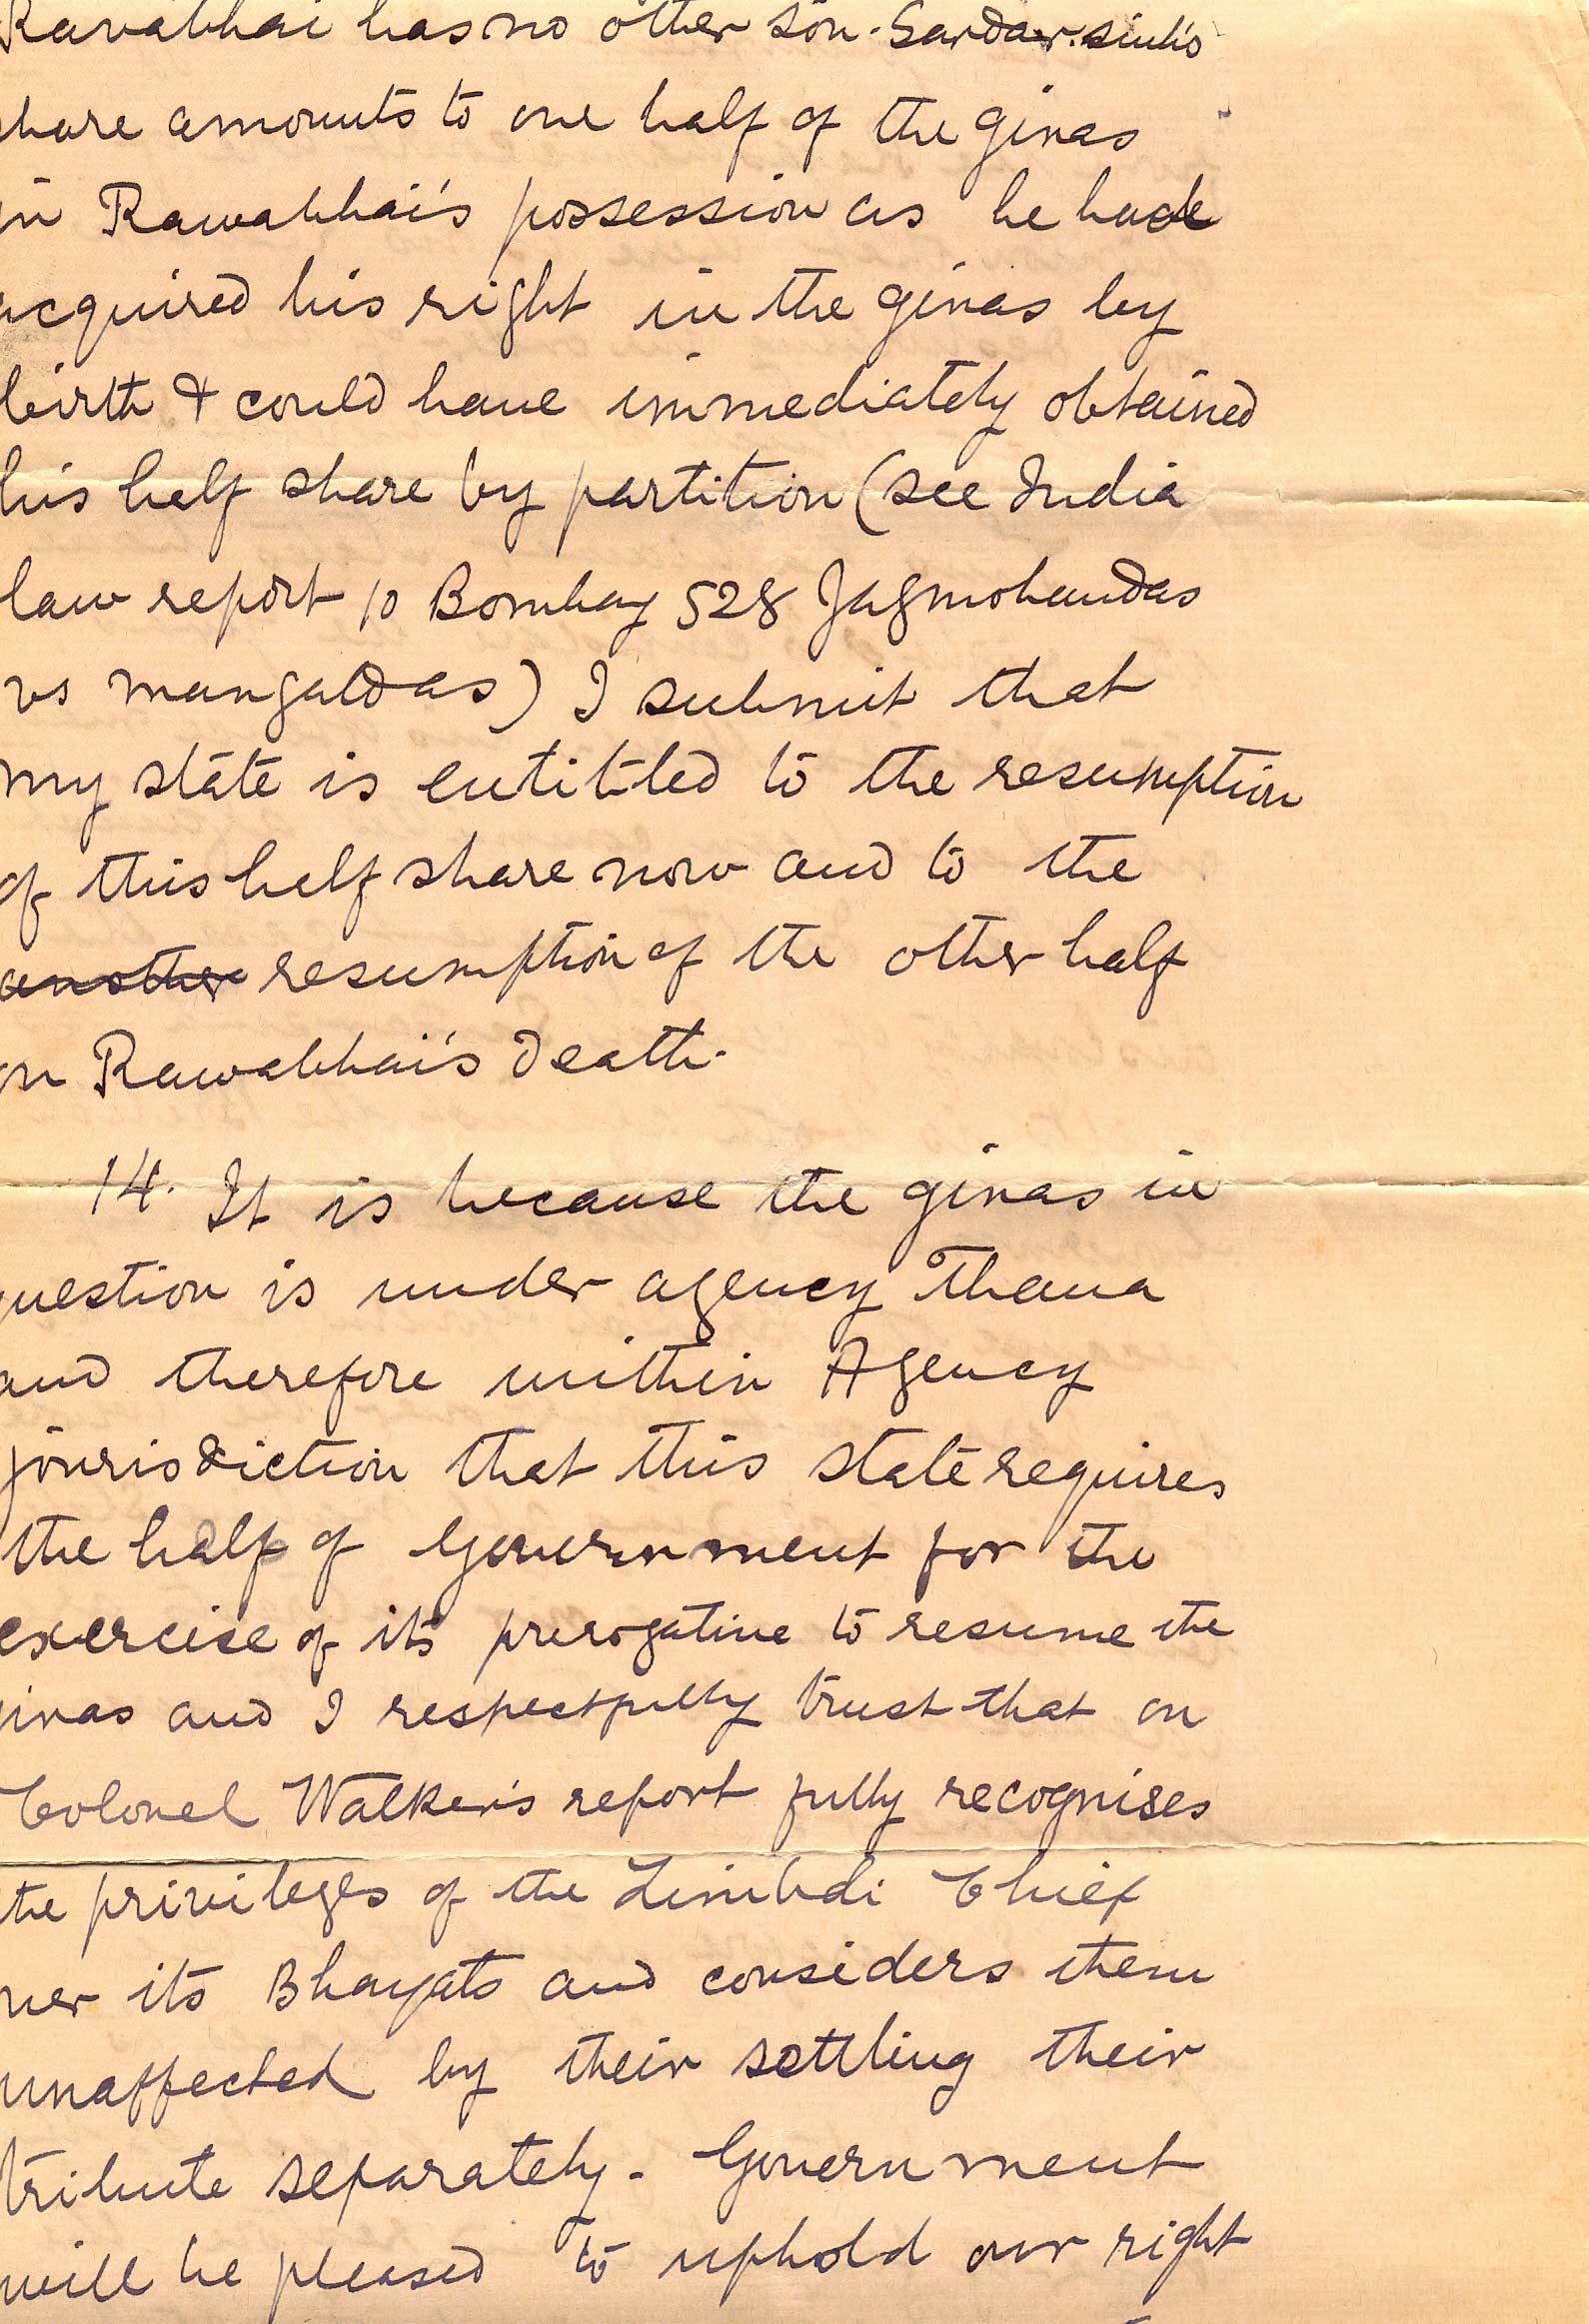 Ravabhai has no other son. Sardar sinh's
share amounts to one half of the giras
in Rawabhai's possession as he had
acquired his right in the giras by
birth & could have immediately obtained
his half share by partition (see India
law report 10 Bombay 528 Jagmohandas
vs mangaldas) I submit that
my state is entitled to the resumption
of this half share now and to the
another resumption of the other half
on Rawabhai's death.
14. It is because the giras in
question is under agency Thana
and therefore within Agency
jourisdiction that this state requires
the half of Government for the
exercise of its prerogative to resume the
giras and I respectfully trust that on
Colonel Walker's report fully recognises
the privileges of the Limbdi Chief
over its Bhayats and considers them
unaffected by their settling their
tribute separately. Government
will be pleased to uphold our right